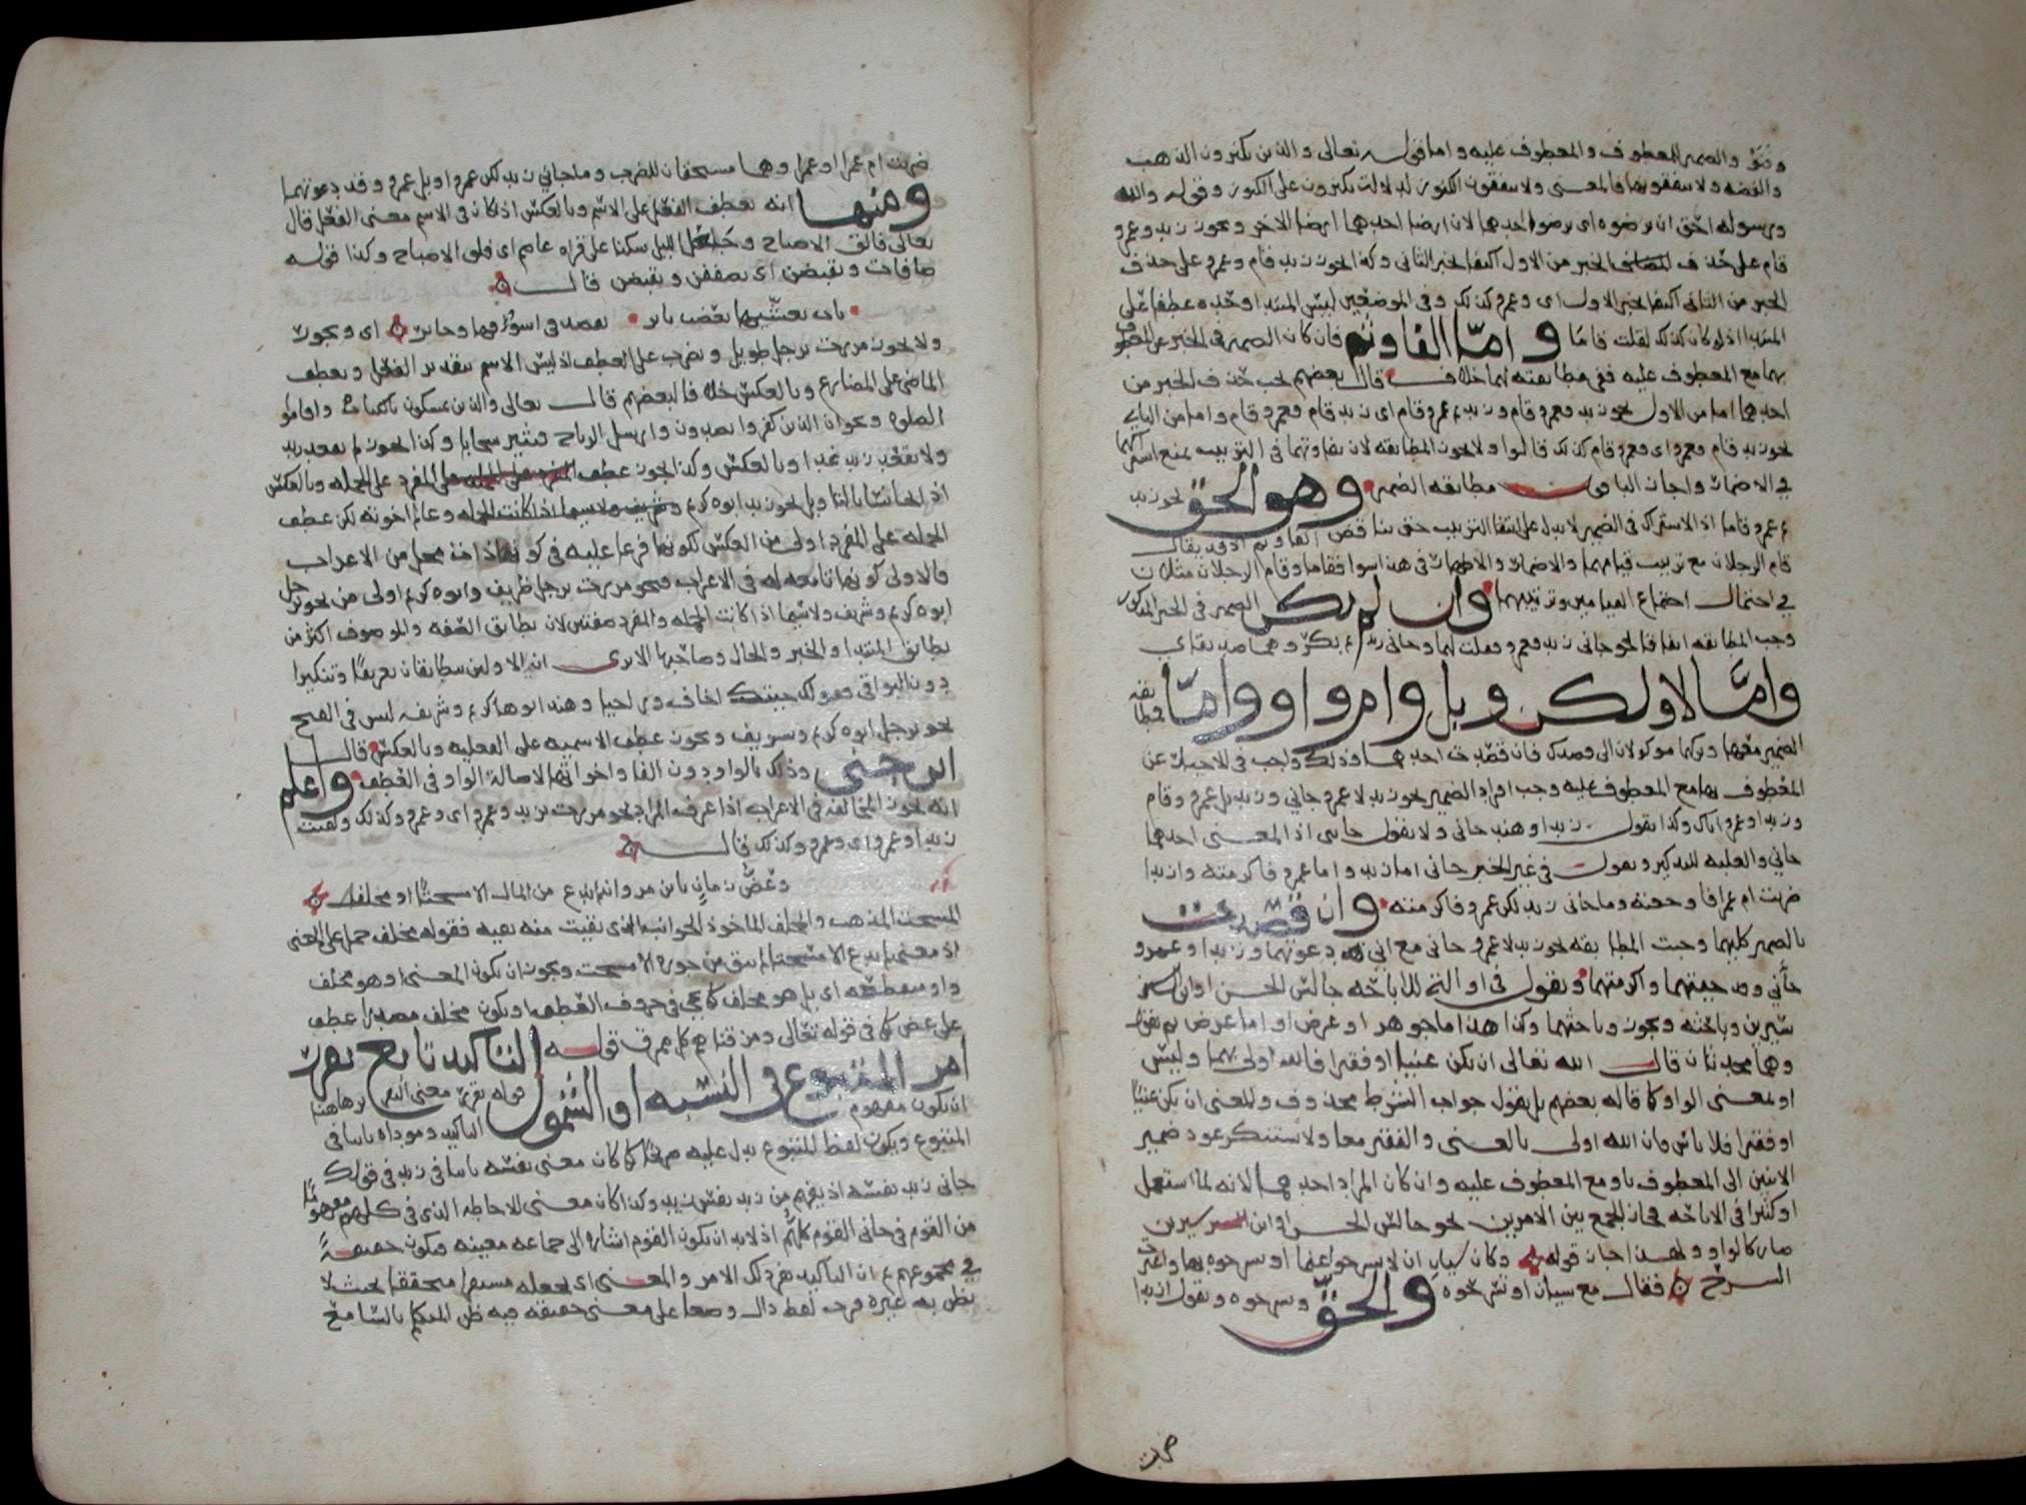 وثم والضمير للمعطوف والمعطوف عليه واما قوله تعالى والذين يكنزون الذهب
والفضه ولا ينفقونها فالمعنى ولا ينفقون الكنوز لدلالت يكنزون على الكنوز وقوله والله
ورسوله احق ان يرضوه اى يرضوا احدهما لان ارضا احدهما ارضا للاخر ويجوز زيد وعمرو
قام على حذف الخبر من الاول اكتفا بخبر الثانى وكذا يجوز زيد قام وعمرو على حذف
الخبر من الثانى اكتفا بخبر الاول اى وعمرو كذلك وفى الموضعين ليس المبتدا وحده عطفا على
المبتدا اذ لو كان كذلك لقلت قاما واما الفا وثم فان كان الضمير فى الخبر عن المعطوف
بهما مع المعطوف عليه ففى مطابقته لهما خلاف قال بعضهم يجب حذف الخبر من
احدهما اما من الاول نحو زيد فعمرو قام وزيد ثم عمرو قام اى زيد قام فعمرو قام واما من الثانى
نحو زيد قام فعمرو اى فعمرو قام كذلك قالوا ولا يجوز المطابقه لان تفاوتهما فى الترتيب يمنع اشتراكهما
فى الاضمار واجاز الباقون مطابقه الضمير وهو الحق نحو زيد
ثم عمرو قاما اذ الاشتراك فى الضمير لا يدل على انتفا الترتيب حتى يناقض الفا وثم اذ قد يقال
قام الرجلان مع ترتيب قيامهما والاضمار والاظهار فى هذا سوا فقاما وقام الرجلان مثلان
فى احتمال اجتماع القيامين وترتيبهما وان لم يكن الضمير فى الخبر المذكور
وجب المطابقه اتفاقا نحو جانى زيد فعمرو فقلت لهما وجانى زيد ثم بكر وهما صديقاى
واما لا ولكن وبل وام واو واما فمطابقه
الضمير معها وتركها موكولان الى قصدك فان قصدت احدهما وذلك واجب فى الاخبار عن
المعطوف بها مع المعطوف عليه وجب افراد الضمير نحو زيد لا عمرو جانى وزيد بل عمرو قام
وزيد او عمرو اتاك وكذا تقول زيد او هند جانى ولا تقول جاتنى اذ المعنى احدهما
جانى والغلبه للتذكير وتقول فى غير الخبر جانى اما زيد واما عمرو فاكرمته وازيدا
ضربت ام عمرا فاوجعته وما جانى زيد لكن عمرو فاكرمته وان قصدت
بالضمير كليهما وجبت المطابقه نحو زيد لا عمرو جانى مع انى دعوتهما وزيد او عمرو
جانى وقد جيتهما واكرمتهما وتقول فى او التى للاباحه جالس الحسن او ابن سيرين
وباحثه ويجوز وباحثهما وكذا هذا اما جوهر او عرض او اما عرض ثم تقول
وهما محدثان قال الله تعالى ان يكن غنيا او فقيرا فالله اولى بهما وليس
او بمعنى الواو كما قاله بعضهم بل نقول جواب الشرط محذوف والمعنى ان يكن غنيا
او فقيرا فلا باس فان الله اولى بالغنى والفقير معا ولا يستنكر عود ضمير
الاثنين الى المعطوف باو مع المعطوف عليه وان كان المراد احدهما لانه لما استعمل
او كثيرا فى الاباحه فجاز الجمع بين الامرين نحو جالس الحسن او ابن سيرين
صار كالواو ولهذا جاز قوله وكان سيان ان لا يسرحوا غنما او يسرحوه بها واغبرت
السرح فقال مع سيان او يسرحوه والحق ويسرحوه وتقول ازيدا
ضربت
ضربت ام عمرا او عمرا وهما مستحقان للضرب وما جانى زيد لكن عمرو او بل عمرو وقد دعوتهما
ومنها انه يعطف الفعل على الاسم وبالعكس اذا كان فى الاسم معنى الفعل قال
تعالى فالق الاصباح وجعل الليل سكنا على قراه عاصم اى فلق الاصباح وكذا قوله
صافات ويقبضن اى يصففن ويقبضن قال
بات يعشيها بعضب باتر يقصد فى اسوقها وجائر اى ويجور
ولا يجوز مررت برجل طويل ويضرب على العطف اذ ليس الاسم بتقدير الفعل ويعطف
الماضى على المضارع وبالعكس خلافا لبعضهم قال تعالى والذين يمسكون بالكتاب واقاموا
الصلوه ونحو ان الذين كفروا ويصدون وارسل الرياح فتثير سحابا وكذا يجوز لم يقعد زيد
ولا يقعد زيد غدا وبالعكس وكذا يجوز عطف المفرد على الجمله وبالعكس
اذا تجانسا بالتاويل نحو زيد ابوه كريم وشريف ولا سيما اذا كانت الجمله وعالم اخوته لكن عطف
الجمله على المفرد اولى من العكس لكونها فرعا عليه فى كونها ذا محل من الاعراب
فالاولى كونها تابعه له فى الاعراب فنحو مررت برجل ظريف وابوه كريم اولى من نحو برجل
ابوه كريم وشريف ولا سيما اذا كانت الجمله والمفرد صفتين لان تطابق الصفه والموصوف اكثر من
تطابق المبتدا والخبر والحال وصاحبها الا ترى ان الاولين يتطابقان تعريفا وتنكيرا
دون البواقى فقولك جيتك اخاف وراجيا وهند ابوها كريم وشريفه ليس فى القبح
نحو برجل ابوه كريم وشريف ويجوز عطف الاسميه على الفعليه وبالعكس قال
ابن جنى وذلك بالواو دون الفا واخواتها لاصالة الواو فى العطف واعلم
انه يجوز المخالفه فى الاعراب اذا عرف المراد نحو مررت بزيد وعمرو اى وعمرو كذلك ولقيت
زيدا وعمرو اى وعمرو كذلك قال
وعض زمان يا بن مروان لم يدع من المال الا مسحتا او مجلف
المسحت المذهب والمجلف الماخوذ الجوانب الذى بقيت منه بقيه فقوله مجلف حملا على المعنى
اذ معنى لم يدع الا مسحتا لم يبق من جوره الا مسحت ويجوز ان يكون المعنى او هو مجلف
واو منقطعه اى بل هو مجلف كما يجى فى حروف العطف او يكون مجلف مصدرا عطف
على عض كما فى قوله تعالى ومزقناهم كل ممزق قوله التاكيد تابع يقرر
امر المتبوع فى النسبه او الشمول قوله يقرر معنى التقرير هاهنا
ان يكون مفهوم التاكيد وموداه ثابتا فى
المتبوع ويكون لفظ المتبوع يدل عليه صريحا كما كان معنى نفسه ثابتا فى زيد فى قولك
جانى زيد نفسه اذ يفهم من زيد نفس زيد وكذا كان معنى الاحاطه الذى فى كلهم مفهوما
من القوم فى جانى القوم كلهم اذ لابد ان يكون القوم اشاره الى جماعه معينه فيكون حقيقة
فى مجموعهم ثم ان التاكيد يقرر ذلك الامر والمعنى اى يجعله مستقرا محققا بحيث لا
يظن به غيره فرب لفظ دال وضعا على معنى حقيقه فيه ظن المتكلم بالسامع